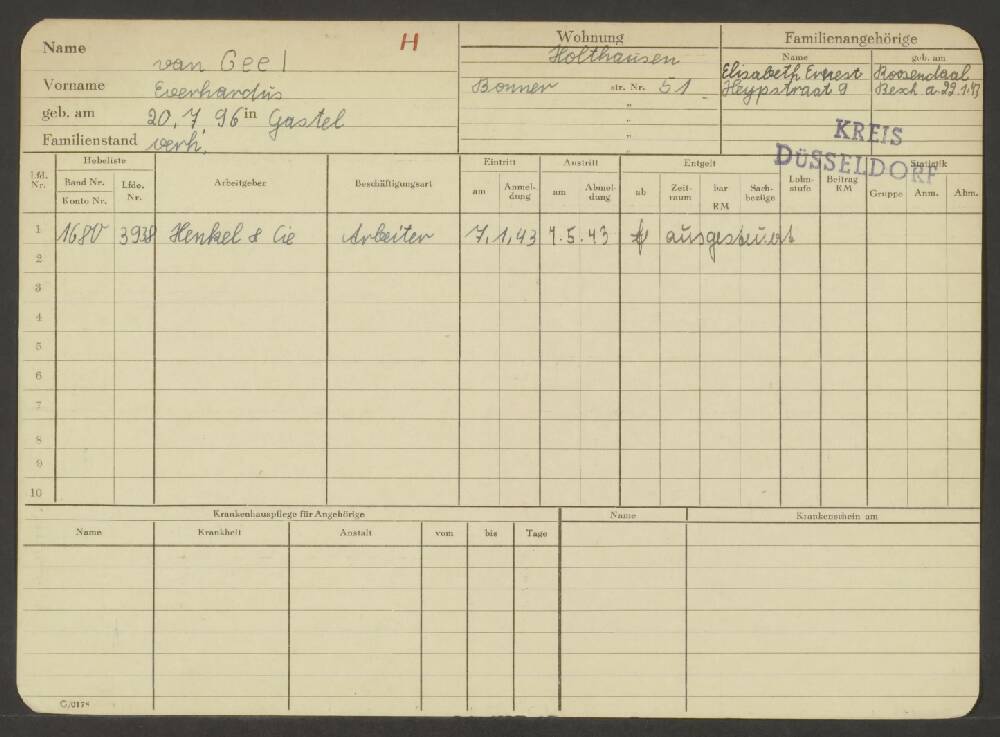 Name van Geel H
Vorname Everhardus
geb. am 20.7.96 in Gastel
Familienstand verh.
Wohnung
Holthausen
Bonner str. Nr. 51
"
"
"
Familienangehörige
Name geb. am
Elisabeth Everest Roosendaal
Heypstraat 9
KREIS
DÜSSELDORF
Lfd. Nr. Hebeliste Arbeitgeber Beschäftigungsart Eintritt Austritt Entgelt Lohn- stufe Beitrag RM Statistik
Band Nr. Lfde. Nr. am Anmel- dung am Abmel- dung ab Zeit- raum bar RM Sach- bezüge Gruppe Anm. Abm.
Konto Nr.
1 1680 3938 Henkel & Cie Arbeiter 7.1.43 7.5.43 ausgesteuert
2
3
4
5
6
7
8
9
10
Krankenhauspflege für Angehörige
Name Krankheit Anstalt vom bis Tage
Name Krankenschein am